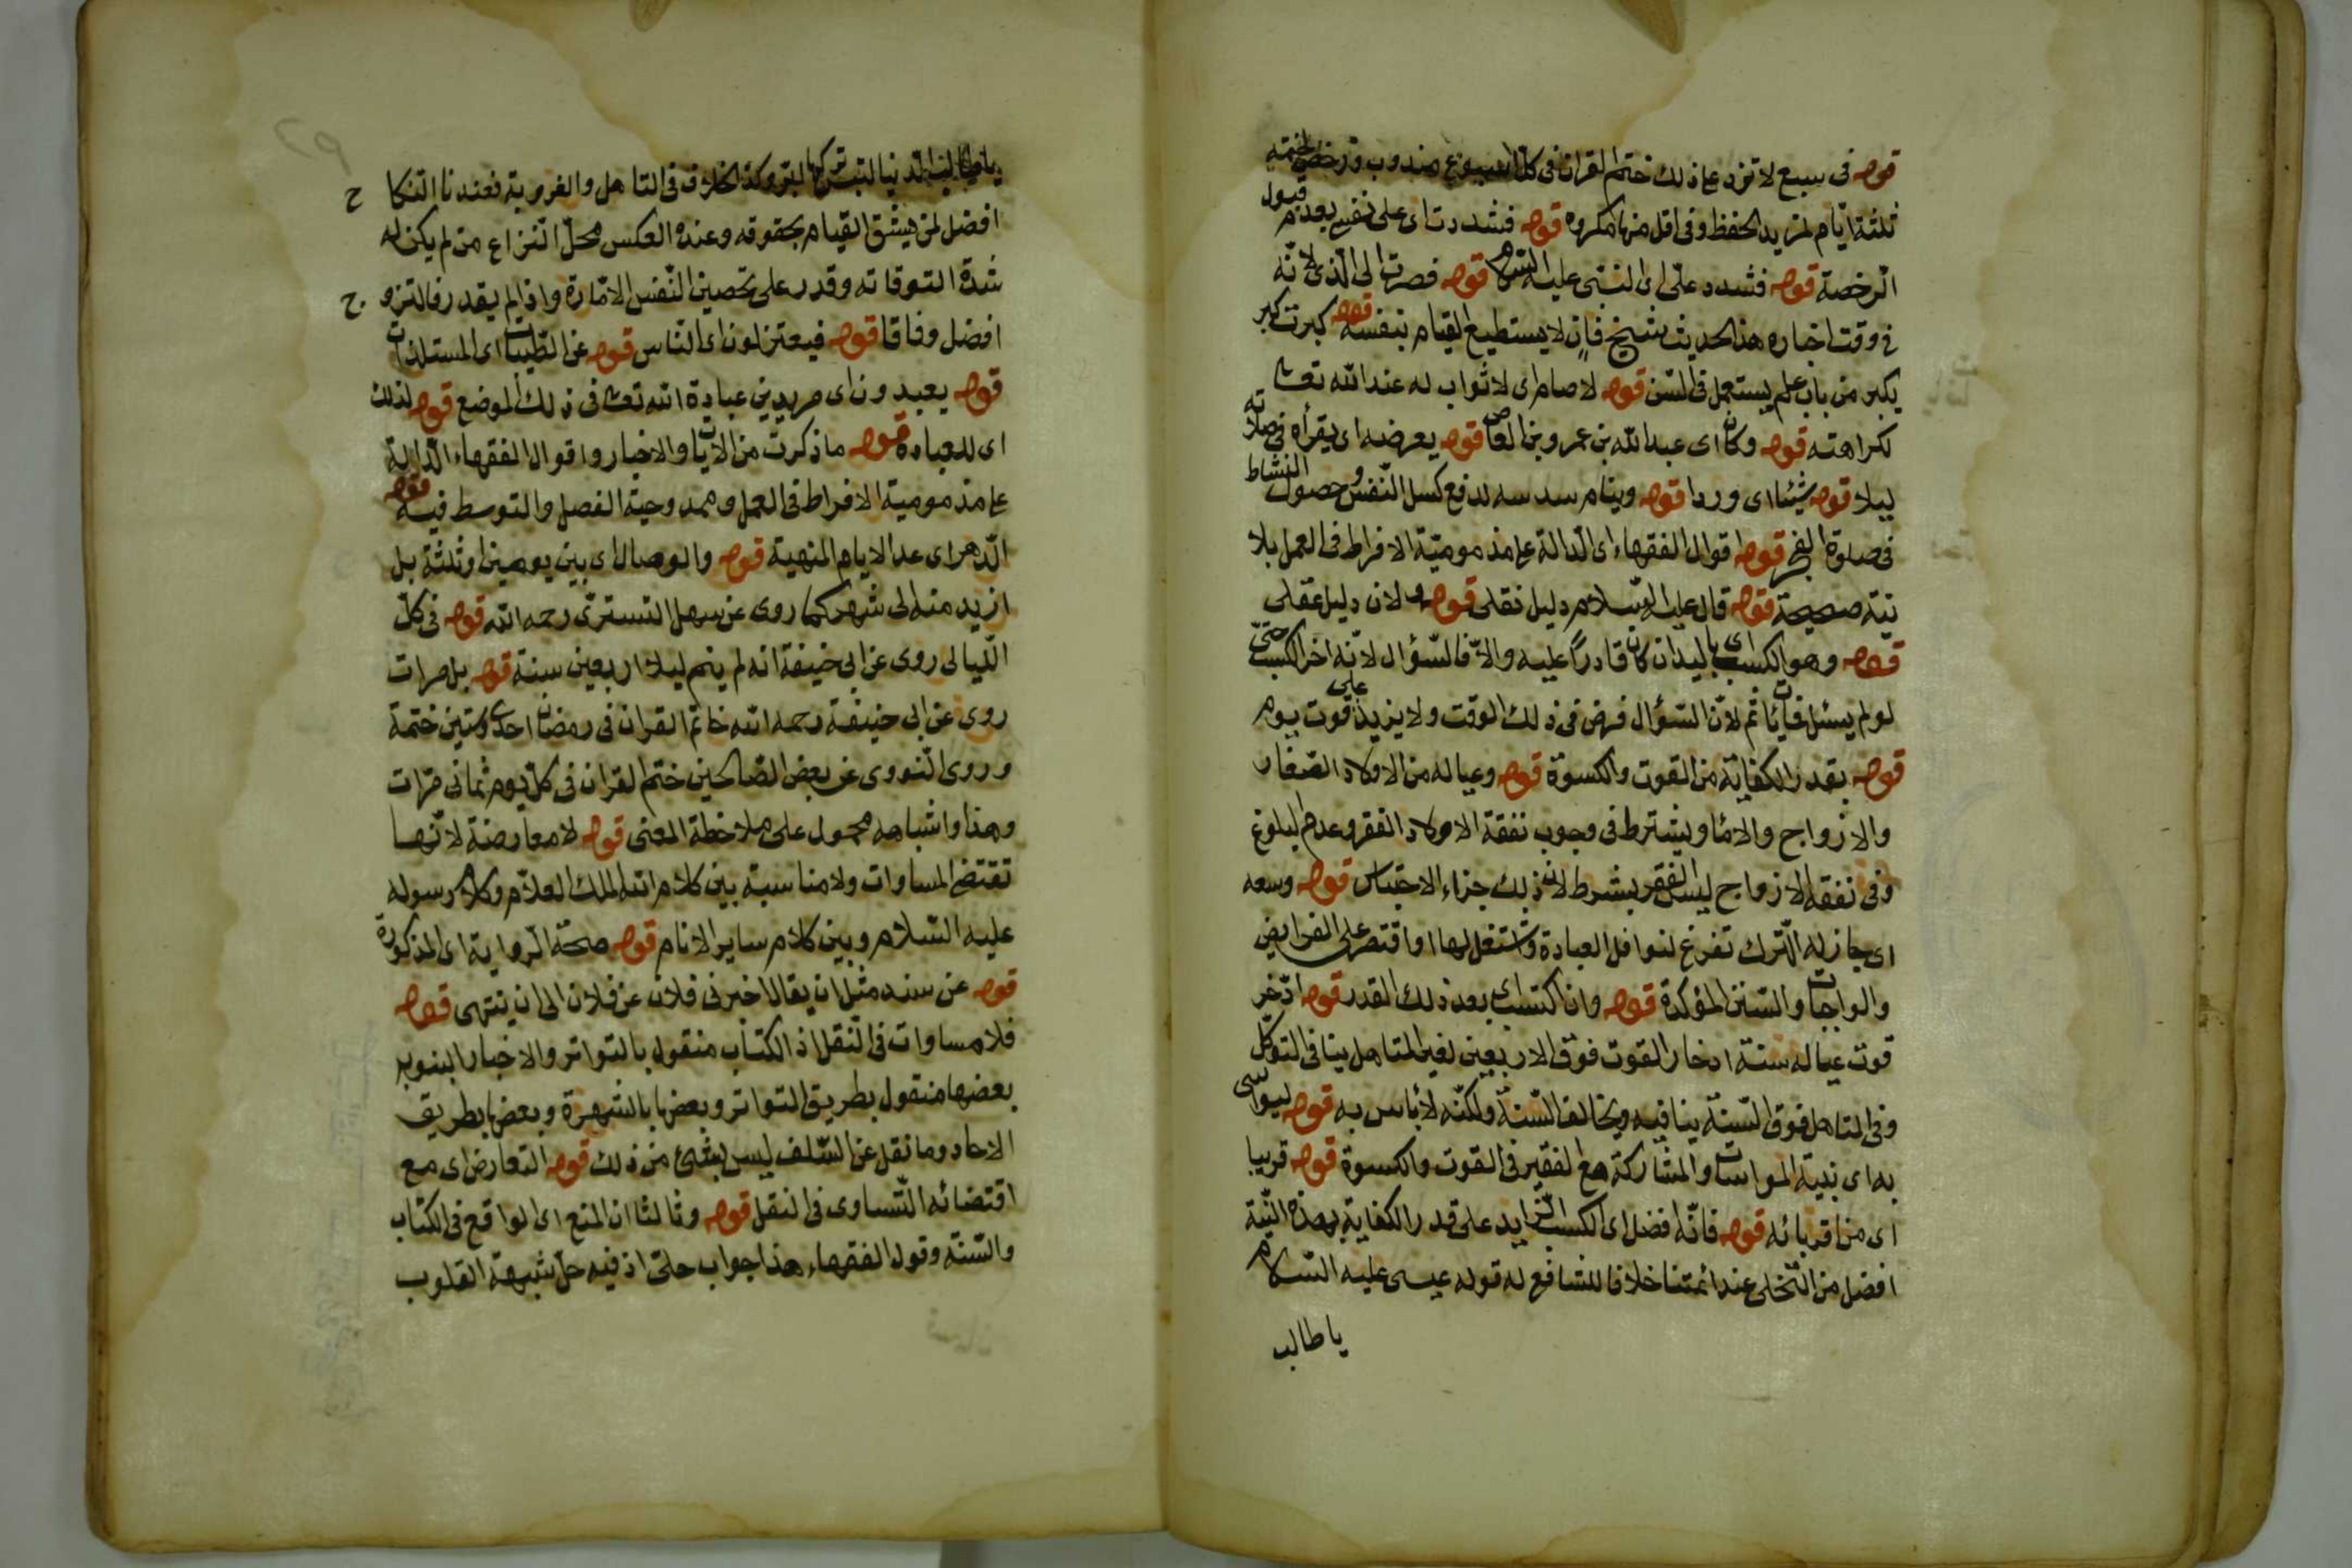 قوله فى سبع لا تزد على ذلك ختم القران فى كل اسبوع مندوب ورخص ختمه
ثلثة ايّام لمزيد الحفظ وفى اقل منها مكروه قوله فشددت اى على نفسى بعدم قبول
الرخصة قوله فشدد علىّ اى النبى عليه السلام قوله فصرت الى الذى لانه
فى وقت اخباره هذا الحديث شيخ فان لا يستطيع القيام بنفسه قوله كبرت كبر
يكبر من باب علم يستعمل فى السن قوله لا صام اى لا ثواب له عند الله تعالى
لكراهته قوله وكان اى عبد الله بن عمرو بن العاص قوله يعرضه اى يقرأه فى صلاته
ليلا قوله شيئا اى وردا قوله وينام سدسه لدفع كسل النفس وحصول النشاط
فى صلوة الفجر قوله اقوال الفقهاء اى الدالة على مذمومية الافراط فى العمل بلا
نية صحيحة قوله قال عليه السلام دليل نقلى قوله ولان دليل عقلى
قوله وهو الكسب اى باليد ان كان قادرًا عليه والا فالسّؤال لانّه اخر الكسب حتى
لو لم يسئل فات اثم لانّ السّؤال فرض فى ذلك الوقت ولا يزيد على قوت يوم
قوله بقدر الكفاية من القوت والكسوة قوله وعياله من الاولاد الصغار
والازواج والاماء ويشترط فى وجوب نفقة الاولاد الفقر وعدم البلوغ
وفى نفقة الازواج ليس الفقر بشرط لان ذلك جزاء الاحتباس قوله وسعه
اى جاز له الترك تفرغ لنوافل العبادة واشتغل بها او اقتصر على الفرايض
والواجبات والسّنن المؤكدة قوله وان اكتسب اى بعد ذلك القدر قوله ادّخر
قوت عياله سنة ادخار القوت فوق الاربعين لغير المتاهل ينافى التوكّل
وفى المتاهل فوق السّنة ينافيه ويخالف السّنة ولكنّه لا باس به قوله ليواسى
به اى بنية المواسات والمشاركة مع الفقير فى القوت والكسوة قوله قريبا
اى من اقربائه قوله فانّه افضل اى الكسب الزايد على قدر الكفاية بهذه النّية
افضل من التّخلى عند ائمتنا خلافا للشافع له قوله عيسى عليه السّلام
يا طالب
يا طالب الدنيا لتبر تركها ابر وكذا الخلاف فى التاهل والغروبة فعندنا النكاح
افضل لمن يثق القيام بحقوقه وعنده العكس محلّ النزاع من لم يكن له
شدة التوقاته وقدر على تحصين النّفس الامّارة واذا لم يقدر فالتزوج
افضل وفاقا قوله فيعتزلون اى الناس قوله عن الطيبات اى المستلذات
قوله يعبدون اى مريدين عبادة الله تعالى فى ذلك الموضع قوله لذلك
اى للعبادة قوله ما ذكرت من الايات والاخبار واقوال الفقهاء الدّالة
على مذمومية الافراط فى العمل وممدوحية الفصل والتوسط فيه قوله
الدّهر اى عدا الايام المنهية قوله والوصال اى بين يومين او ثلثة بل
ازيد منه الى شهر كما روى عن سهل التسترىّ رحمه الله قوله فى كلّ
الليالى روى عن ابى حنيفة انه لم ينم ليلا اربعين سنة قوله بل مرات
روى عن ابى حنيفة رحمه الله ختم القران فى رمضان احدى وستين ختمة
وروى النّووى عن بعض الصّالحين ختم القران فى كلّ يوم ثمانى مرات
وهذا واشباهه محمول على ملاحظة المعنى قوله لا معارضة لانّها
تقتضى المساوات ولا مناسبة بين كلام الله الملك العلاّم وكلام رسوله
عليه السّلام وبين كلام ساير الانام قوله صحّة الرواية اى المذكورة
قوله عن سند مثل ان يقال اخبرنى فلان عن فلان الى ان ينتهى قوله
فلا مساوات فى النّقل اذ الكتاب منقول بالتواتر والاخبار النبوية
بعضها منقول بطريق التواتر وبعضها بالشهرة وبعضها بطريق
الاحاد وما نقل عن السّلف ليس بشئ من ذلك قوله التعارض اى مع
اقتضائه التّساوى فى النقل قوله وثالثا ان المنع اى الواقع فى الكتاب
والسّنة وقول الفقهاء هذا جواب حلّى اذ فيه حلّ شبهة القلوب